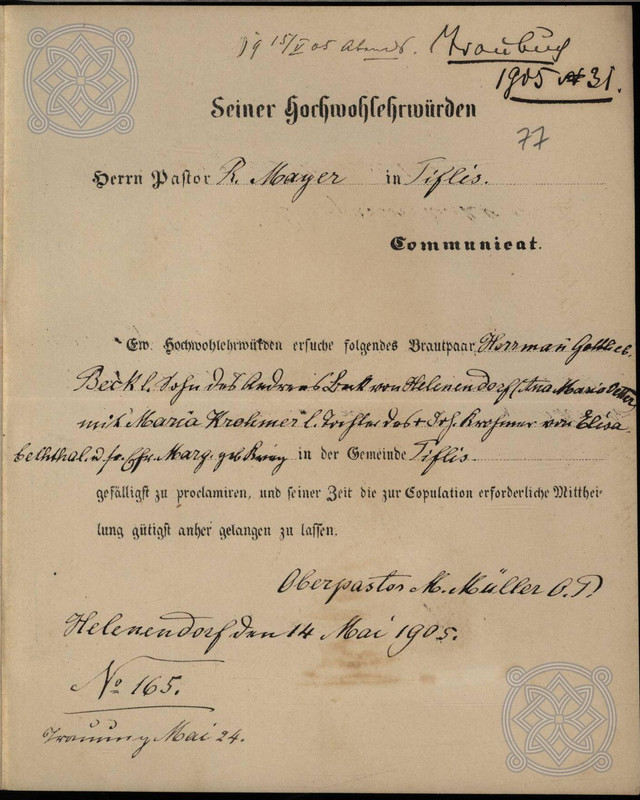 15/V 05 Abends. Traubuch
1905 № 31.
Seiner Hochwohlehrwürden
77
Herrn Pastor R. Mayer in Tiflis.
Communicat.
Ew. Hochwohlehrwürden ersuche folgendes Brautpaar Herrman Gottlieb
Beck l. Sohn des Andreas Beck von Helenendorf / Ana Maria
mit Maria Krohmer l. Tochter des + Joh. Krohmer von Elisa-
bethtal. u. Chr. Marg. geb. Krieg in der Gemeinde Tiflis
gefälligst zu proclamiren, und seiner Zeit die zur Copulation erforderliche Mitthei-
lung gütigst anher gelangen zu lassen.
Oberpastor M. Müller O. P.
Helenendorf den 14 Mai 1905.
No 165.
Trauung Mai 24.